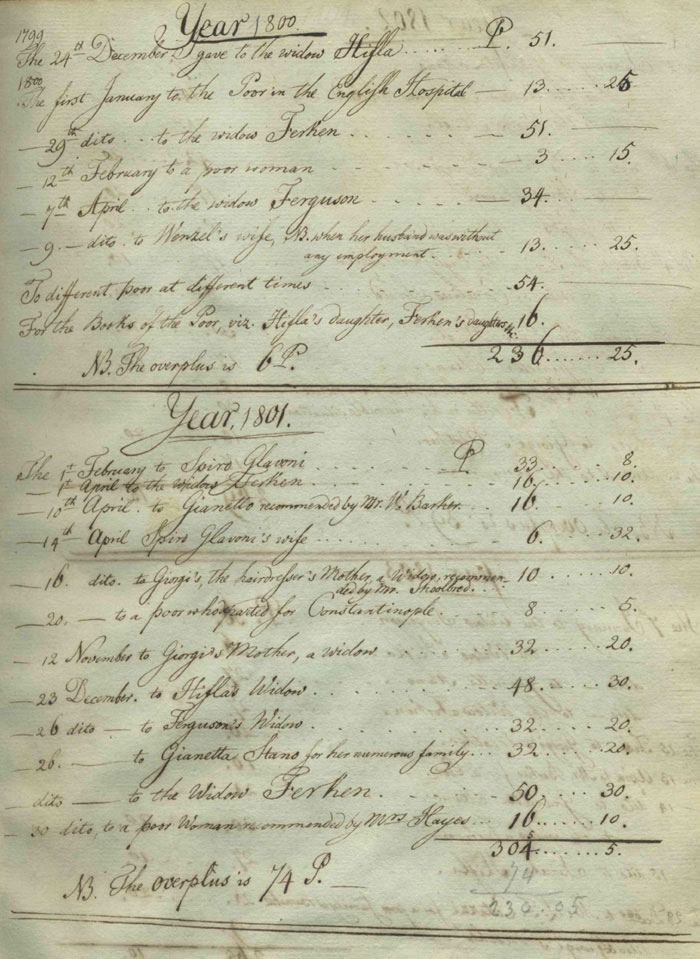 Year 1800.
1799
The 24th December, I gave to the widow Hifla ...... P. 51.
1800
The first January to the Poor in the English Hospital — 13 ..... 25
— 29th dito ... to the widow Ferken ........ 51.
— 12th February to a poor woman ........ 3 ..... 15.
— 7th April .. to the widow Ferguson ...... 34.
— 9. — dito. to Wenzel's wife, NB. when her husband was without
any employment. .. 13. ..... 25.
To different poor at different times ........ 54.
For the Books of the Poor, viz. Hifla's daughter, Ferken's daughter 16.
NB. The overplus is 6 P. 236 ...... 25.
Year, 1801.
The 1st February to Spiro Glavoni ...... P 33 ..... 8.
— 1st April to the Widow Ferken ...... 16 ..... 10.
— 10th April. to Gianetto recommended by Mr. W. Barker. 16 ..... 10
— 14th April Spiro Glavoni's wife ...... 6. ..... 32.
— 16. dito. to Giorgi's, the hairdresser's Mother, a Widow, recommen-
ded by Mr. 10 ..... 10.
— 20. — to a poor who parted for Constantinople. 8 ..... 5.
— 12 November to Giorgi's Mother, a widow 32 ..... 20.
— 23 December. to Hifla's Widow ...... 48 ..... 30.
— 26 dito — to Ferguson's Widow ...... 32 ..... 20.
— 26. — to Gianetta Stano for her numerous family. 32 ..... 20.
dito — to the Widow Ferken. ...... 50 ..... 30
— 30 dito, to a poor Woman recommended by Mrs Hayes ... 16 ..... 10.
304 ..... 5.
NB. The overplus is 74 P. —
74
230.05